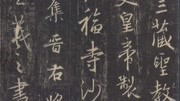 三藏聖教
文皇帝製
福寺沙
集晉右將
羲之書